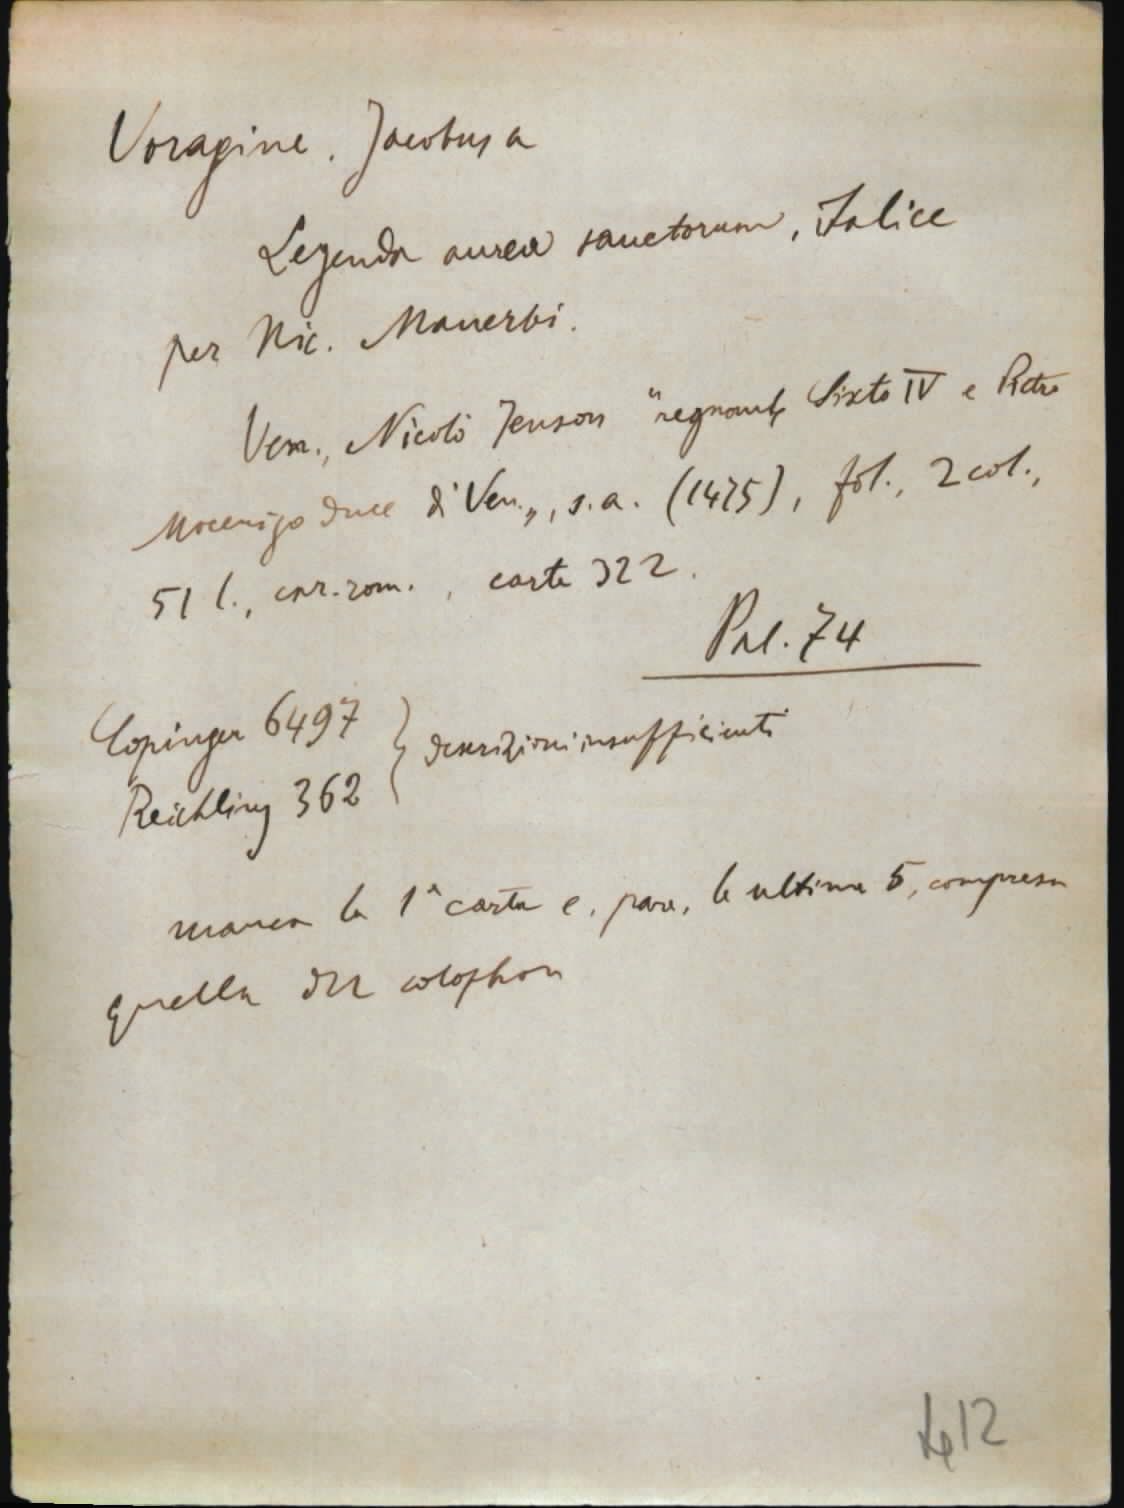 Voragine. Jacobus a
Legenda aurea sanctorum, Italice
per Nic. Manerbi.
Ven., Nicolò Jenson "regnante Sixto IV e Pietro
Mocenigo duce di Ven.„, s.a. (1475), fol., 2 col.,
51 l., car. rom., carte 322.
Pal. 74
Copinger 6497
Reichling 362 } descrizioni insufficienti
manca la 1ª carta e, pare, le ultime 5, compresa
quella del colophon
412